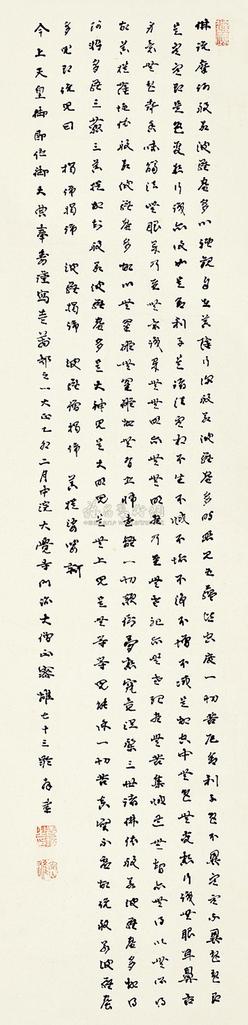 佛説摩訶般若波羅蜜多心經觀自在菩薩行深般若波羅蜜多時照見五蘊皆空度一切苦厄舍利子色不異空空不異色色即
是空空即是色受想行識亦復如是舍利子是諸法空相不生不滅不垢不淨不增不減是故空中無色無受想行識無眼耳鼻舌
身意無色聲香味觸法無眼界乃至無意識界無無明亦無無明盡乃至無老死亦無老死盡無苦集滅道無智亦無得以無所得
故菩提薩埵依般若波羅蜜多故心無罣礙無罣礙故無有恐怖遠離一切顛倒夢想究竟涅槃三世諸佛依般若波羅蜜多故得
阿耨多羅三藐三菩提故知般若波羅蜜多是大神咒是大明咒是無上咒是無等等咒能除一切苦真實不虛故説般若波羅蜜
多咒即説咒曰 揭諦揭諦 波羅揭諦 波羅僧揭諦 菩提娑婆訶
今上天皇御即位御大典奉壽謹寫部之一大正乙卯二月中浣大覺寺門跡大僧正密雄七十三齡